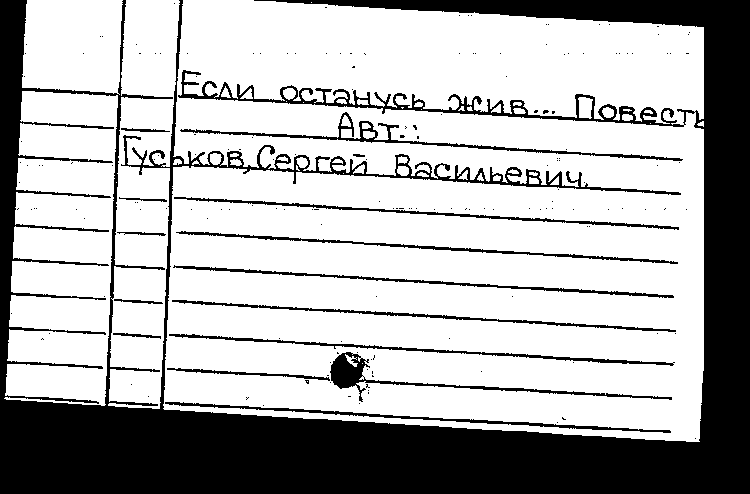 Если останусь жив... Повесть
Авт.:
Гуськов, Сергей Васильевич.